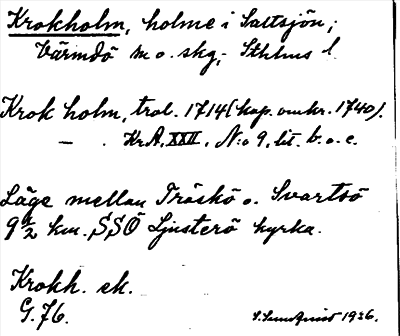 Krokholm, holme i Saltsjön;
Värmdö m o. skg; Sthlms l.
Krok holm, trol. 1714 (kop. omkr. 1740).
— . Kr A, XXII, N:o 9, lit. b. o. c.
Läge mellan Träskö o. Svartsö
9 1/2 km. SSÖ Ljusterö kyrka.
Krokh. ek.
G. 76.
1926.